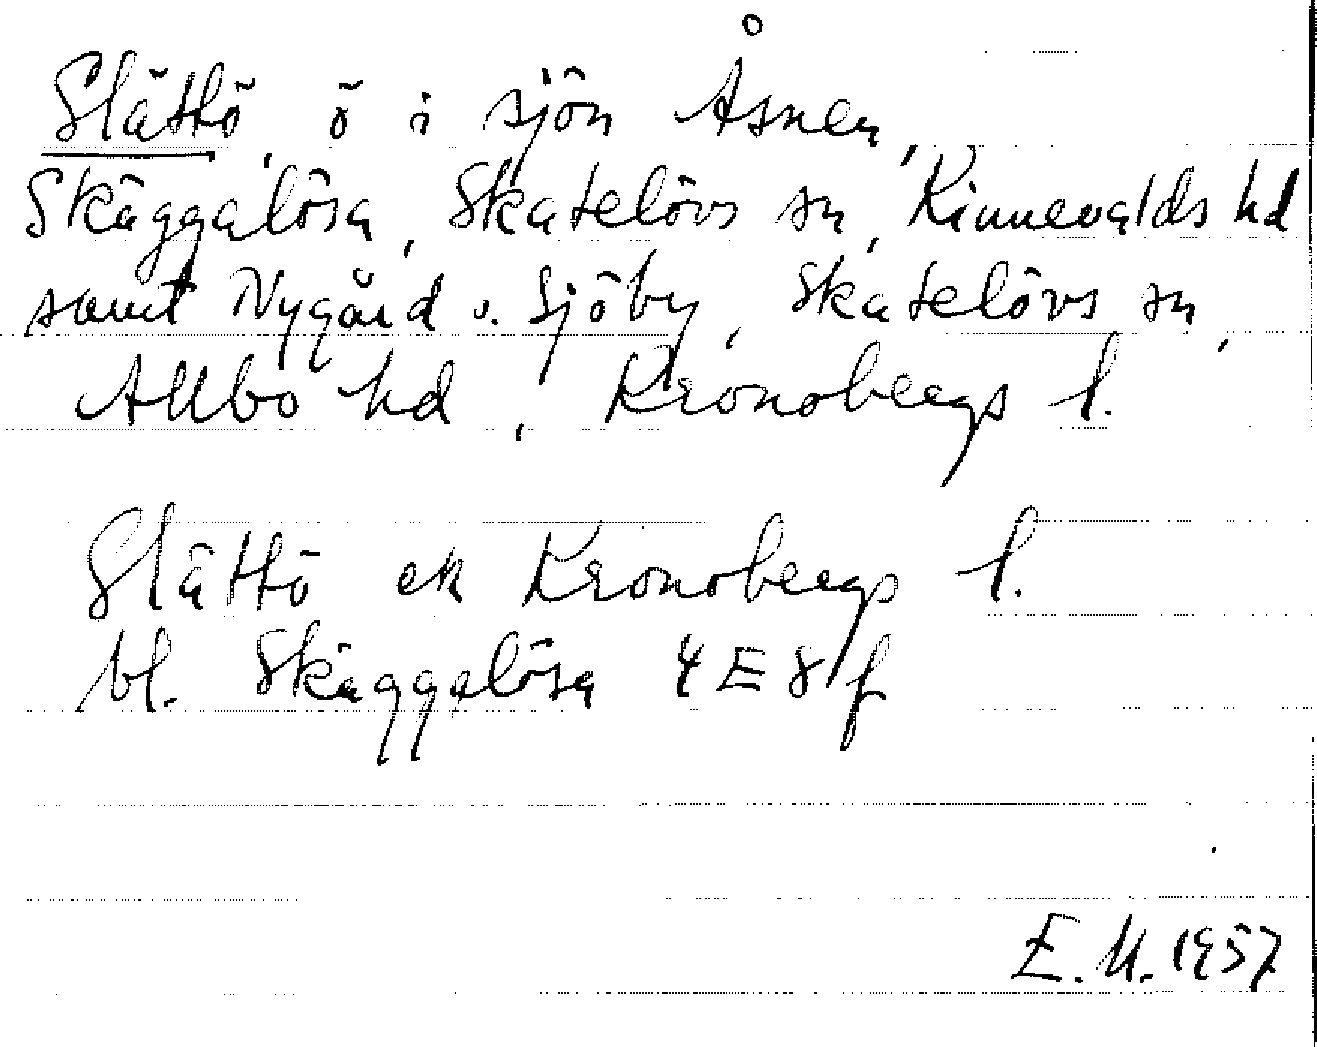 Slättö, ö i sjön Åsnen,
Skäggalösa, Skatelövs sn, Kinnevalds hd
samt Nygård o. Sjöby, Skatelövs sn,
Allbo hd, Kronobergs l.
Slättö ek Kronobergs l.
bl. Skäggalösa 4E8f
E.M. 1957